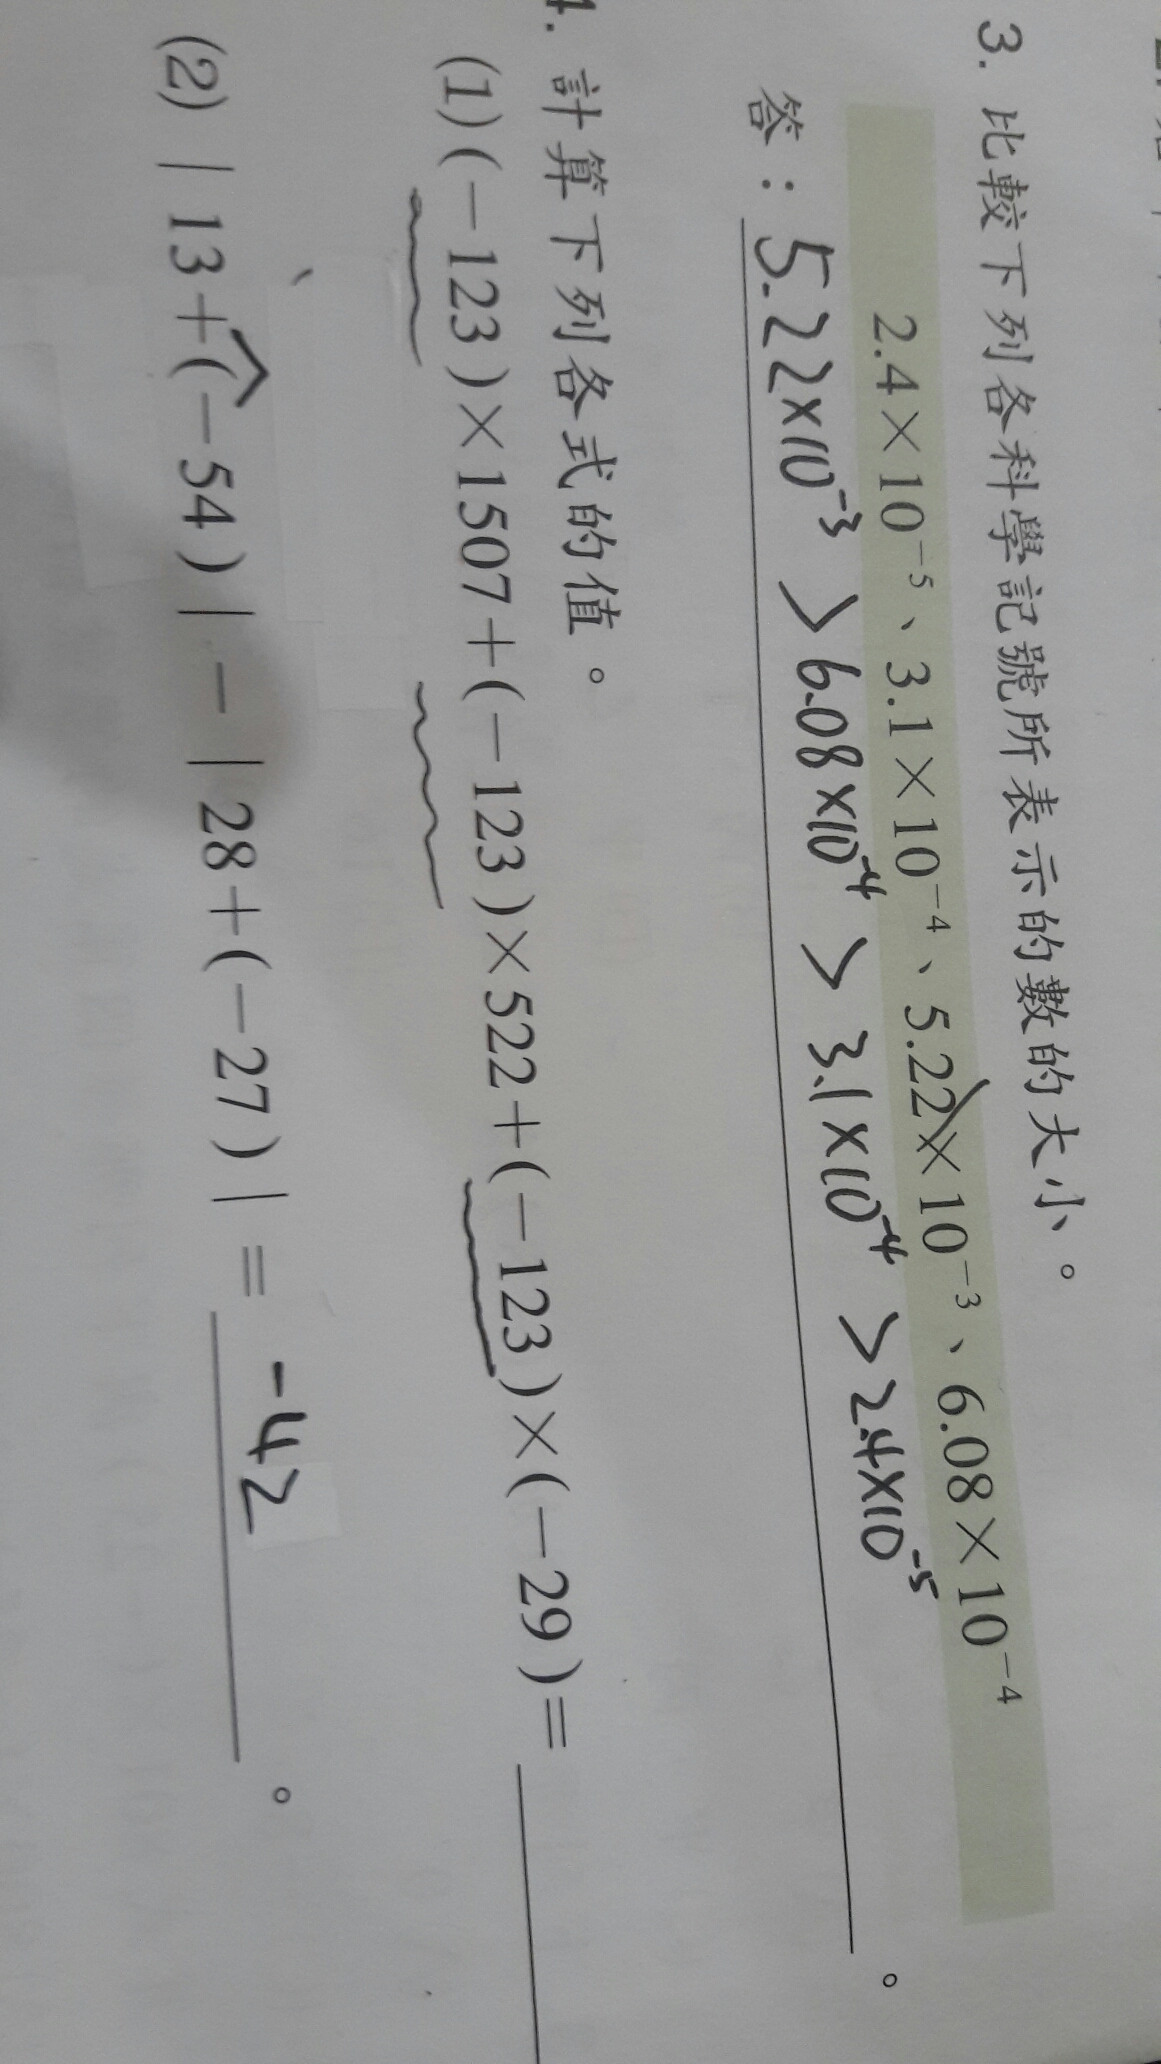 3. 比較下列各科學記號所表示的數的大小。
2.4×10⁻⁵、3.1×10⁻⁴、5.22×10⁻³、6.08×10⁻⁴
答：5.22×10⁻³ > 6.08×10⁻⁴ > 3.1×10⁻⁴ > 2.4×10⁻⁵。
4. 計算下列各式的值。
(1)(－123)×1507＋(－123)×522＋(－123)×(－29)＝
(2)｜13＋(－54)｜－｜28＋(－27)｜＝ -42 。